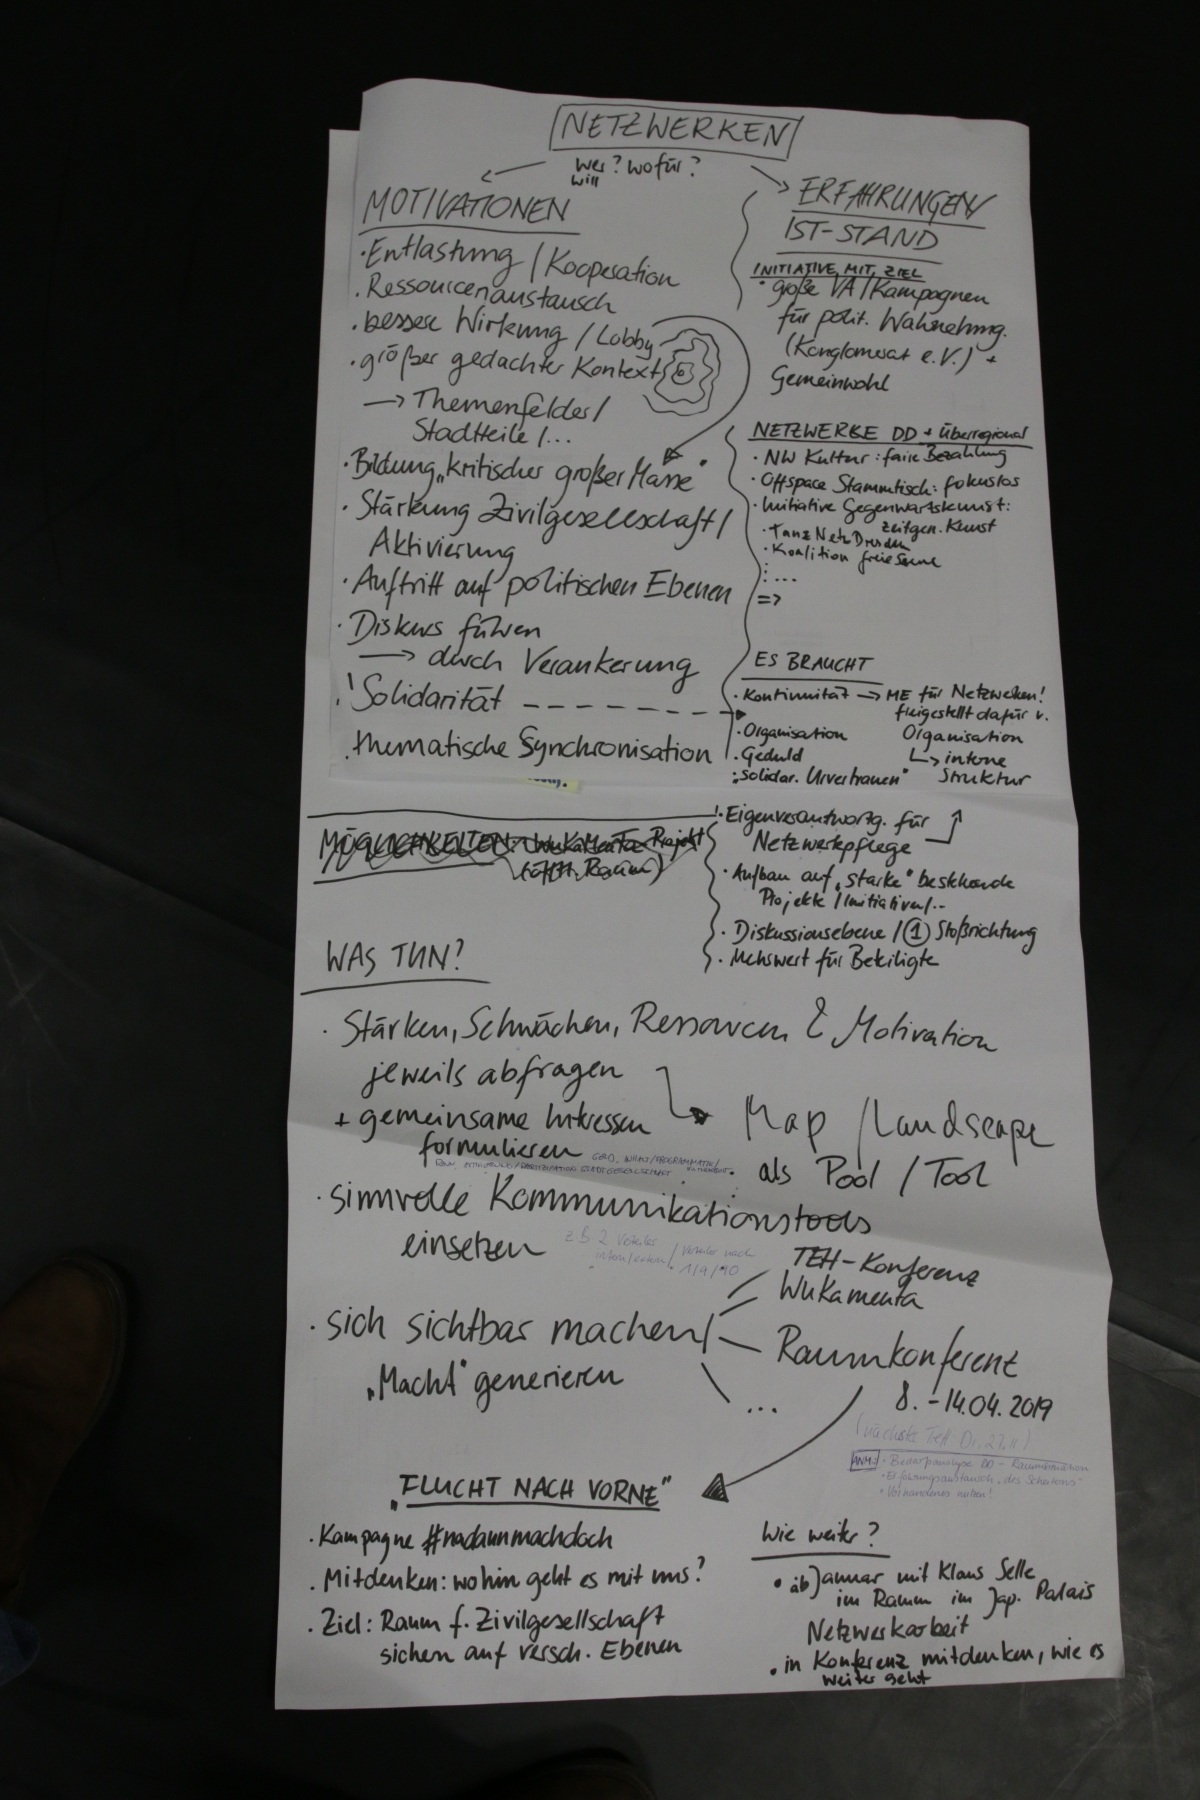 NETZWERKEN
wer? wofür?
will
MOTIVATIONEN
· Entlastung / Kooperation
· Ressourcenaustausch
· bessere Wirkung / Lobby
· größer gedachter Kontext
→ Themenfelder /
Stadtteile / ...
· Bildung „kritischer großer Masse"
· Stärkung Zivilgesellschaft /
Aktivierung
· Auftritt auf politischen Ebenen
· Diskurs führen
→ durch Verankerung
! Solidarität
· thematische Synchronisation
ERFAHRUNGEN/
IST-STAND
INITIATIVE MIT ZIEL
· große VA / Kampagnen
für polit. Wahrnehmg.
(Konglomerat e.V.) +
Gemeinwohl
NETZWERKE DD + überregional
· NW Kultur: faire Bezahlung
· Offspace Stammtisch: fokuslos
· Initiative Gegenwartskunst:
zeitgen. Kunst
· TanzNetzDresden
· Koalition freie Szene
: ...
=>
ES BRAUCHT
· Kontinuität → ME für Netzwerken!
freigestellt dafür v.
· Organisation
Organisation
· Geduld
↳ interne
Struktur
· „solidar. Urvertrauen"
! · Eigenverantwortg. für
Netzwerkpflege
· Aufbau auf „starke" bestehende
Projekte / Initiativen / ..
· Diskussionsebene / ① Stoßrichtung
· Mehrwert für Beteiligte
MÖGLICHKEITEN: WuKaMenta-Projekt
(öfftl. Raum)
WAS TUN?
· Stärken, Schwächen, Ressourcen & Motivation
jeweils abfragen
+ gemeinsame Interessen
formulieren
GELD, INHALT/PROGRAMMATIK/
Map / Landscape
als Pool / Tool
· sinnvolle Kommunikationstools
einsetzen
z.B. 2 Verteiler
intern/extern / Verteiler nach
1/9/90
· sich sichtbar machen /
„Macht" generieren
TEH-Konferenz
WuKaMenta
Raumkonferenz
8. - 14.04.2019
...
(nächstes Treff Di. 27.11.)
ANM.: · Bedarfsanalyse DD - Raumsituation
· Erfahrungsaustausch „des Scheiterns"
· Vorhandenes nutzen!
„FLUCHT NACH VORNE"
· Kampagne #nadannmachdoch
· Mitdenken: wohin geht es mit uns?
· Ziel: Raum f. Zivilgesellschaft
sichern auf versch. Ebenen
Wie weiter?
· ab Januar mit Klaus Selle
im Raum im Jap. Palais
Netzwerkarbeit
· in Konferenz mitdenken, wie es
weiter geht